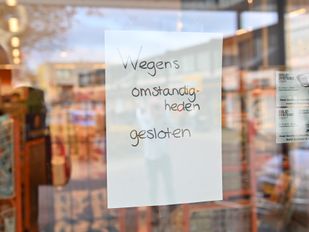 Wegens
omstandig-
heden
gesloten